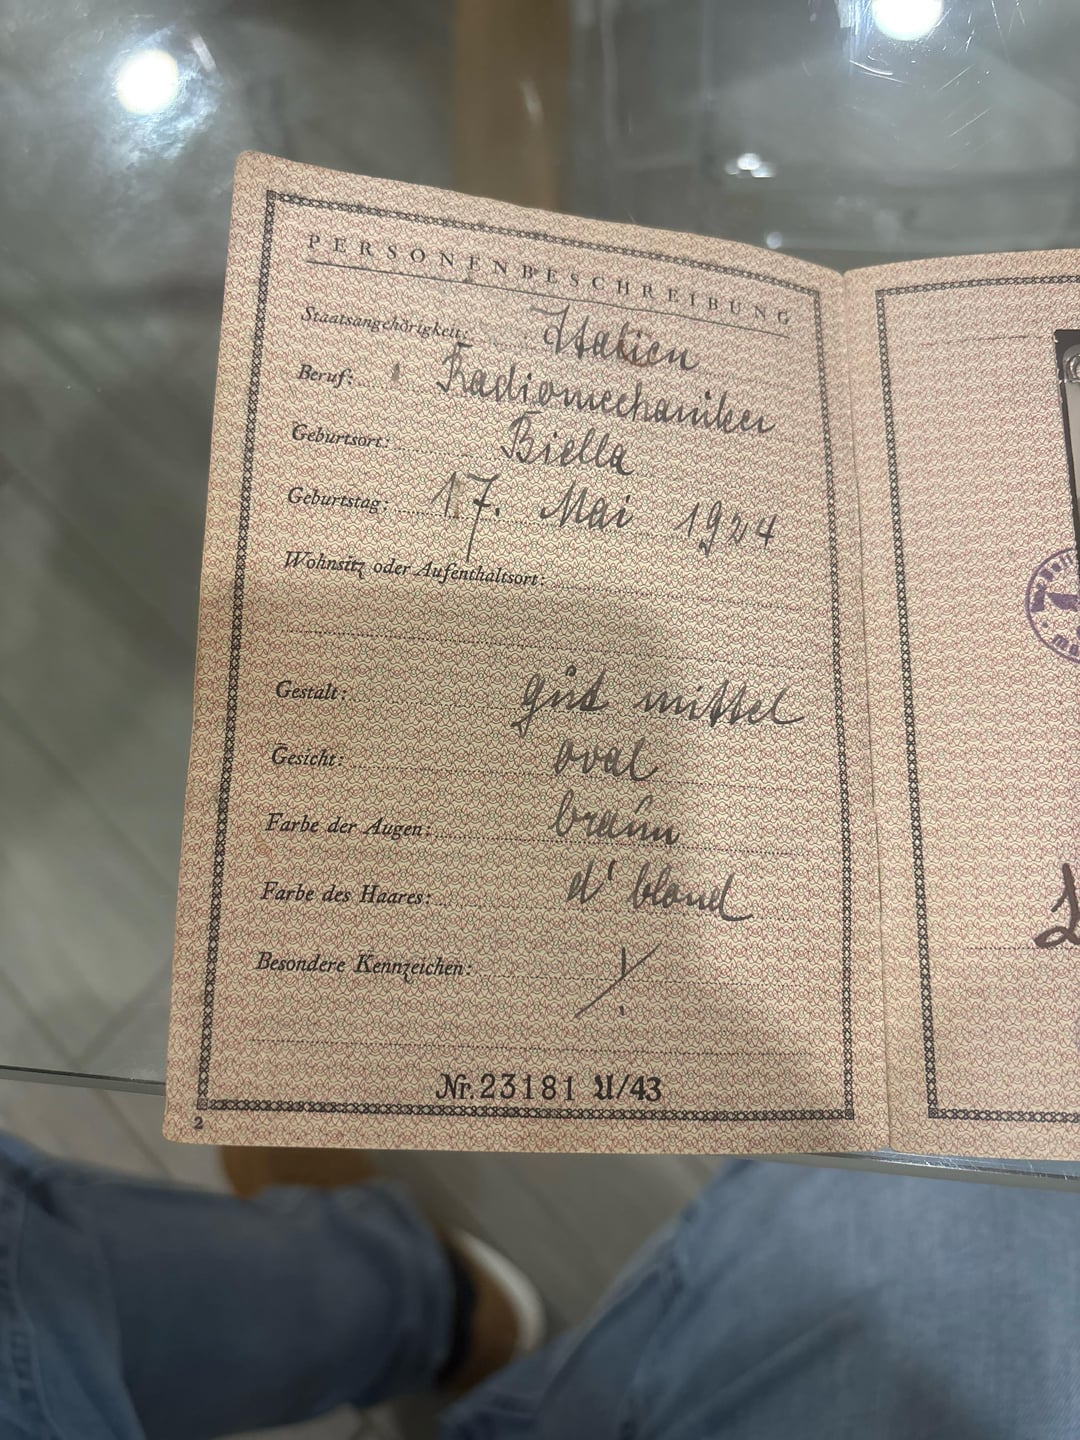 PERSONENBESCHREIBUNG
Staatsangehörigkeit: Italien
Beruf: Radiomechaniker
Geburtsort: Biella
Geburtstag: 17. Mai 1924
Wohnsitz oder Aufenthaltsort:
Gestalt: gut mittel
Gesicht: oval
Farbe der Augen: braun
Farbe des Haares: d' blond
Besondere Kennzeichen: ./.
Nr. 23181 U/43
2